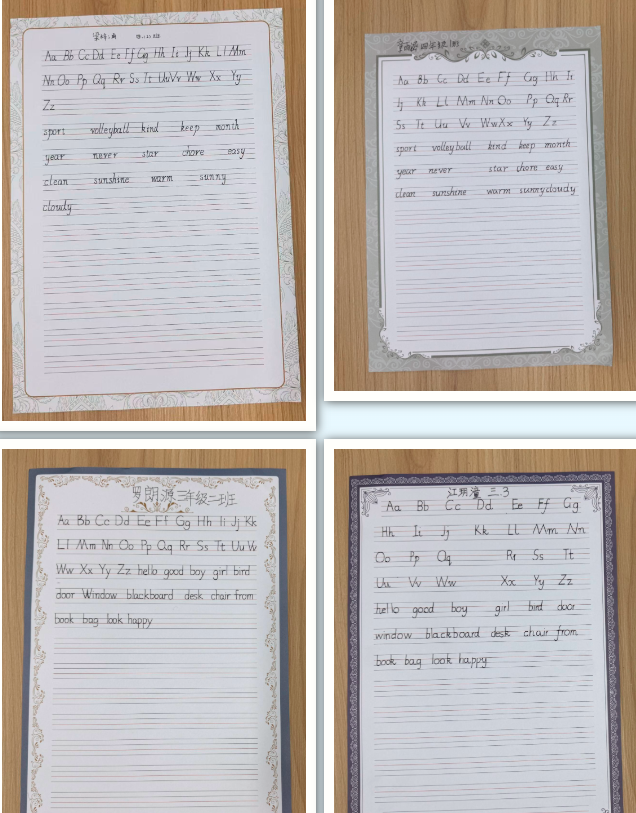 Aa Bb Cc Dd Ee Ff Gg Hh Ii Jj Kk Ll Mm
Nn Oo Pp Qq Rr Ss Tt Uu Vv Ww Xx Yy
Zz
sport volleyball kind keep month
year never star chore easy
clean sunshine warm sunny
cloudy
四年级
Aa Bb Cc Dd Ee Ff Gg Hh Ii
Jj Kk Ll Mm Nn Oo Pp Qq Rr
Ss Tt Uu Vv Ww Xx Yy Zz
sport volleyball kind keep month
year never star chore easy
clean sunshine warm sunny cloudy
罗朗源三年级二班
Aa Bb Cc Dd Ee Ff Gg Hh Ii Jj Kk
Ll Mm Nn Oo Pp Qq Rr Ss Tt Uu Vv
Ww Xx Yy Zz hello good boy girl bird
door Window blackboard desk chair from
book bag look happy
三.3
Aa Bb Cc Dd Ee Ff Gg
Hh Ii Jj Kk Ll Mm Nn
Oo Pp Qq Rr Ss Tt
Uu Vv Ww Xx Yy Zz
hello good boy girl bird door
window blackboard desk chair from
book bag look happy